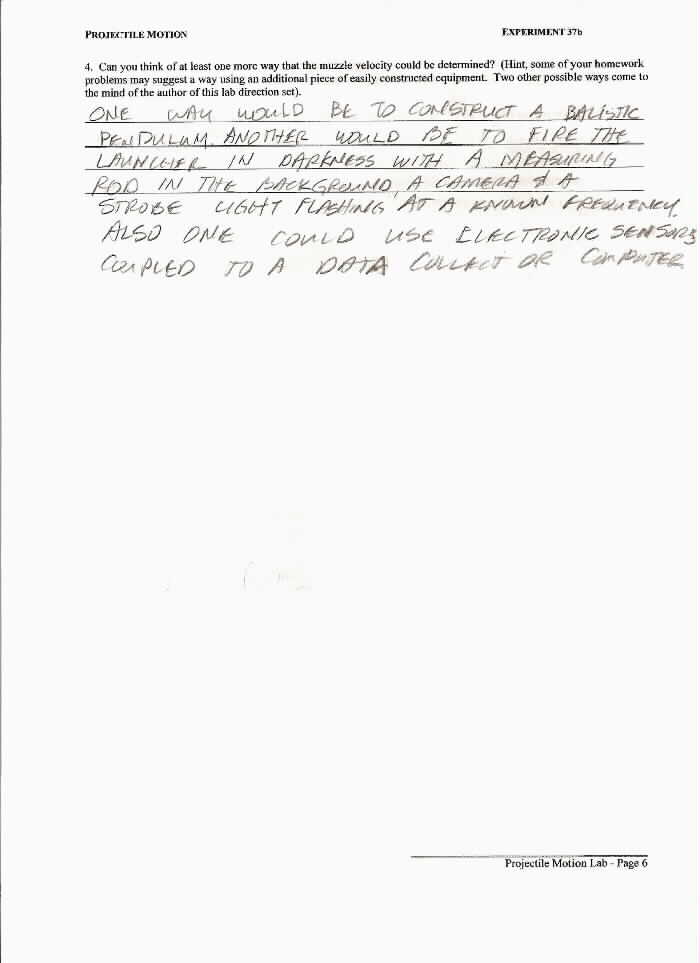 PROJECTILE MOTION EXPERIMENT 37b
4. Can you think of at least one more way that the muzzle velocity could be determined? (Hint, some of your homework
problems may suggest a way using an additional piece of easily constructed equipment. Two other possible ways come to
the mind of the author of this lab direction set).
ONE WAY WOULD BE TO CONSTRUCT A BALISTIC
PENDULUM. ANOTHER WOULD BE TO FIRE THE
LAUNCHER IN DARKNESS WITH A MEASURING
ROD IN THE BACKGROUND, A CAMERA & A
STROBE LIGHT FLASHING AT A KNOWN FREQUENCY.
ALSO ONE COULD USE ELECTRONIC SENSORS
COUPLED TO A DATA COLLECTOR COMPUTER
Projectile Motion Lab - Page 6